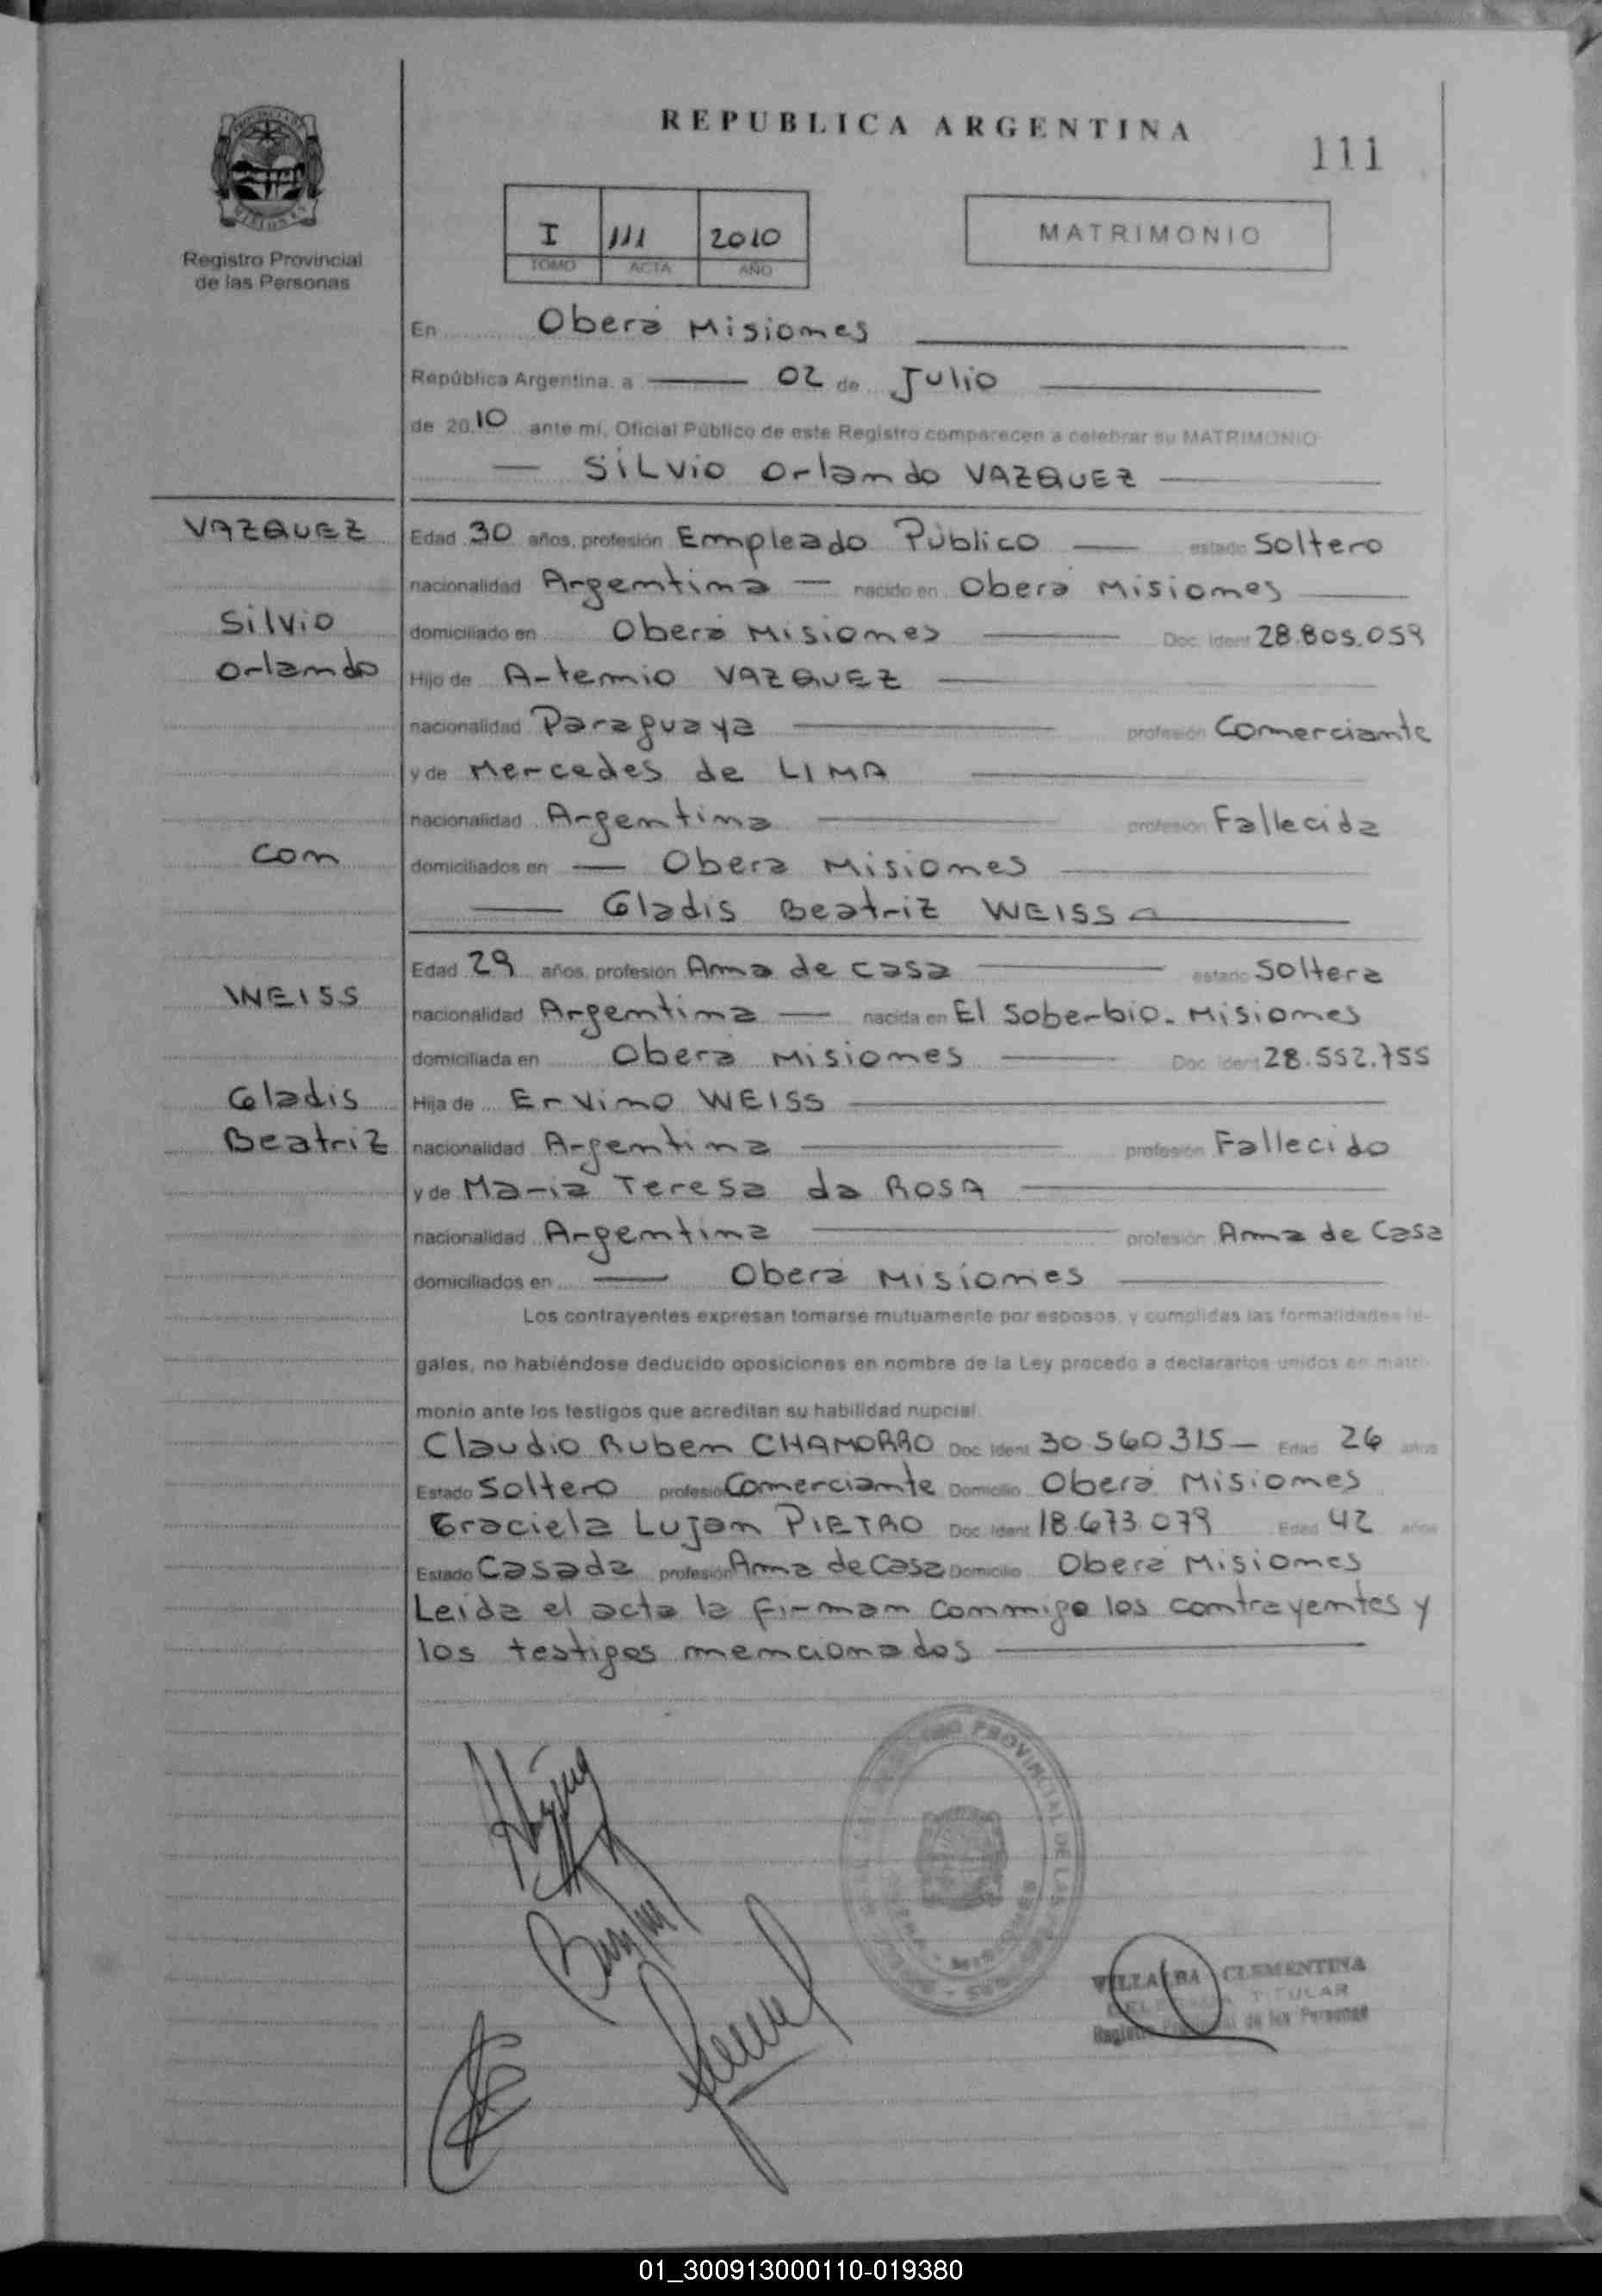 REPUBLICA ARGENTINA
111
Registro Provincial
de las Personas
I 111 2010
TOMO ACTA AÑO
MATRIMONIO
En Oberá Misiones
República Argentina, a 02 de Julio
de 2010 ante mí, Oficial Público de este Registro comparecen a celebrar su MATRIMONIO
SILVIO Orlando VAZQUEZ
VAZQUEZ
Silvio
Orlando
con
WEISS
Gladis
Beatriz
Edad 30 años, profesión Empleado Público estado Soltero
nacionalidad Argentina nacido en Oberá Misiones
domiciliado en Oberá Misiones Doc. Ident 28.805.059
Hijo de Artemio VAZQUEZ
nacionalidad Paraguaya profesión Comerciante
y de Mercedes de LIMA
nacionalidad Argentina profesión Fallecida
domiciliados en Oberá Misiones
Gladis Beatriz WEISS
Edad 29 años, profesión Ama de casa estado Soltera
nacionalidad Argentina nacida en El Soberbio. Misiones
domiciliada en Oberá Misiones Doc. Ident 28.552.755
Hija de Ervino WEISS
nacionalidad Argentina profesión Fallecido
y de Maria Teresa da ROSA
nacionalidad Argentina profesión Ama de Casa
domiciliados en Oberá Misiones
Los contrayentes expresan tomarse mutuamente por esposos, y cumplidas las formalidades le-
gales, no habiéndose deducido oposiciones en nombre de la Ley procedo a declararlos unidos en matri-
monio ante los testigos que acreditan su habilidad nupcial.
Claudio Ruben CHAMORRO Doc. Ident 30.560.315 Edad 26 años
Estado Soltero profesión Comerciante Domicilio Oberá Misiones
Graciela Lujan PIETRO Doc. Ident 18.673.079 Edad 42 años
Estado Casada profesión Ama de Casa Domicilio Oberá Misiones
Leída el acta la firman conmigo los contrayentes y
los testigos mencionados
VILLALBA CLEMENTINA
TITULAR
Registro Provincial de las Personas
01_300913000110-019380